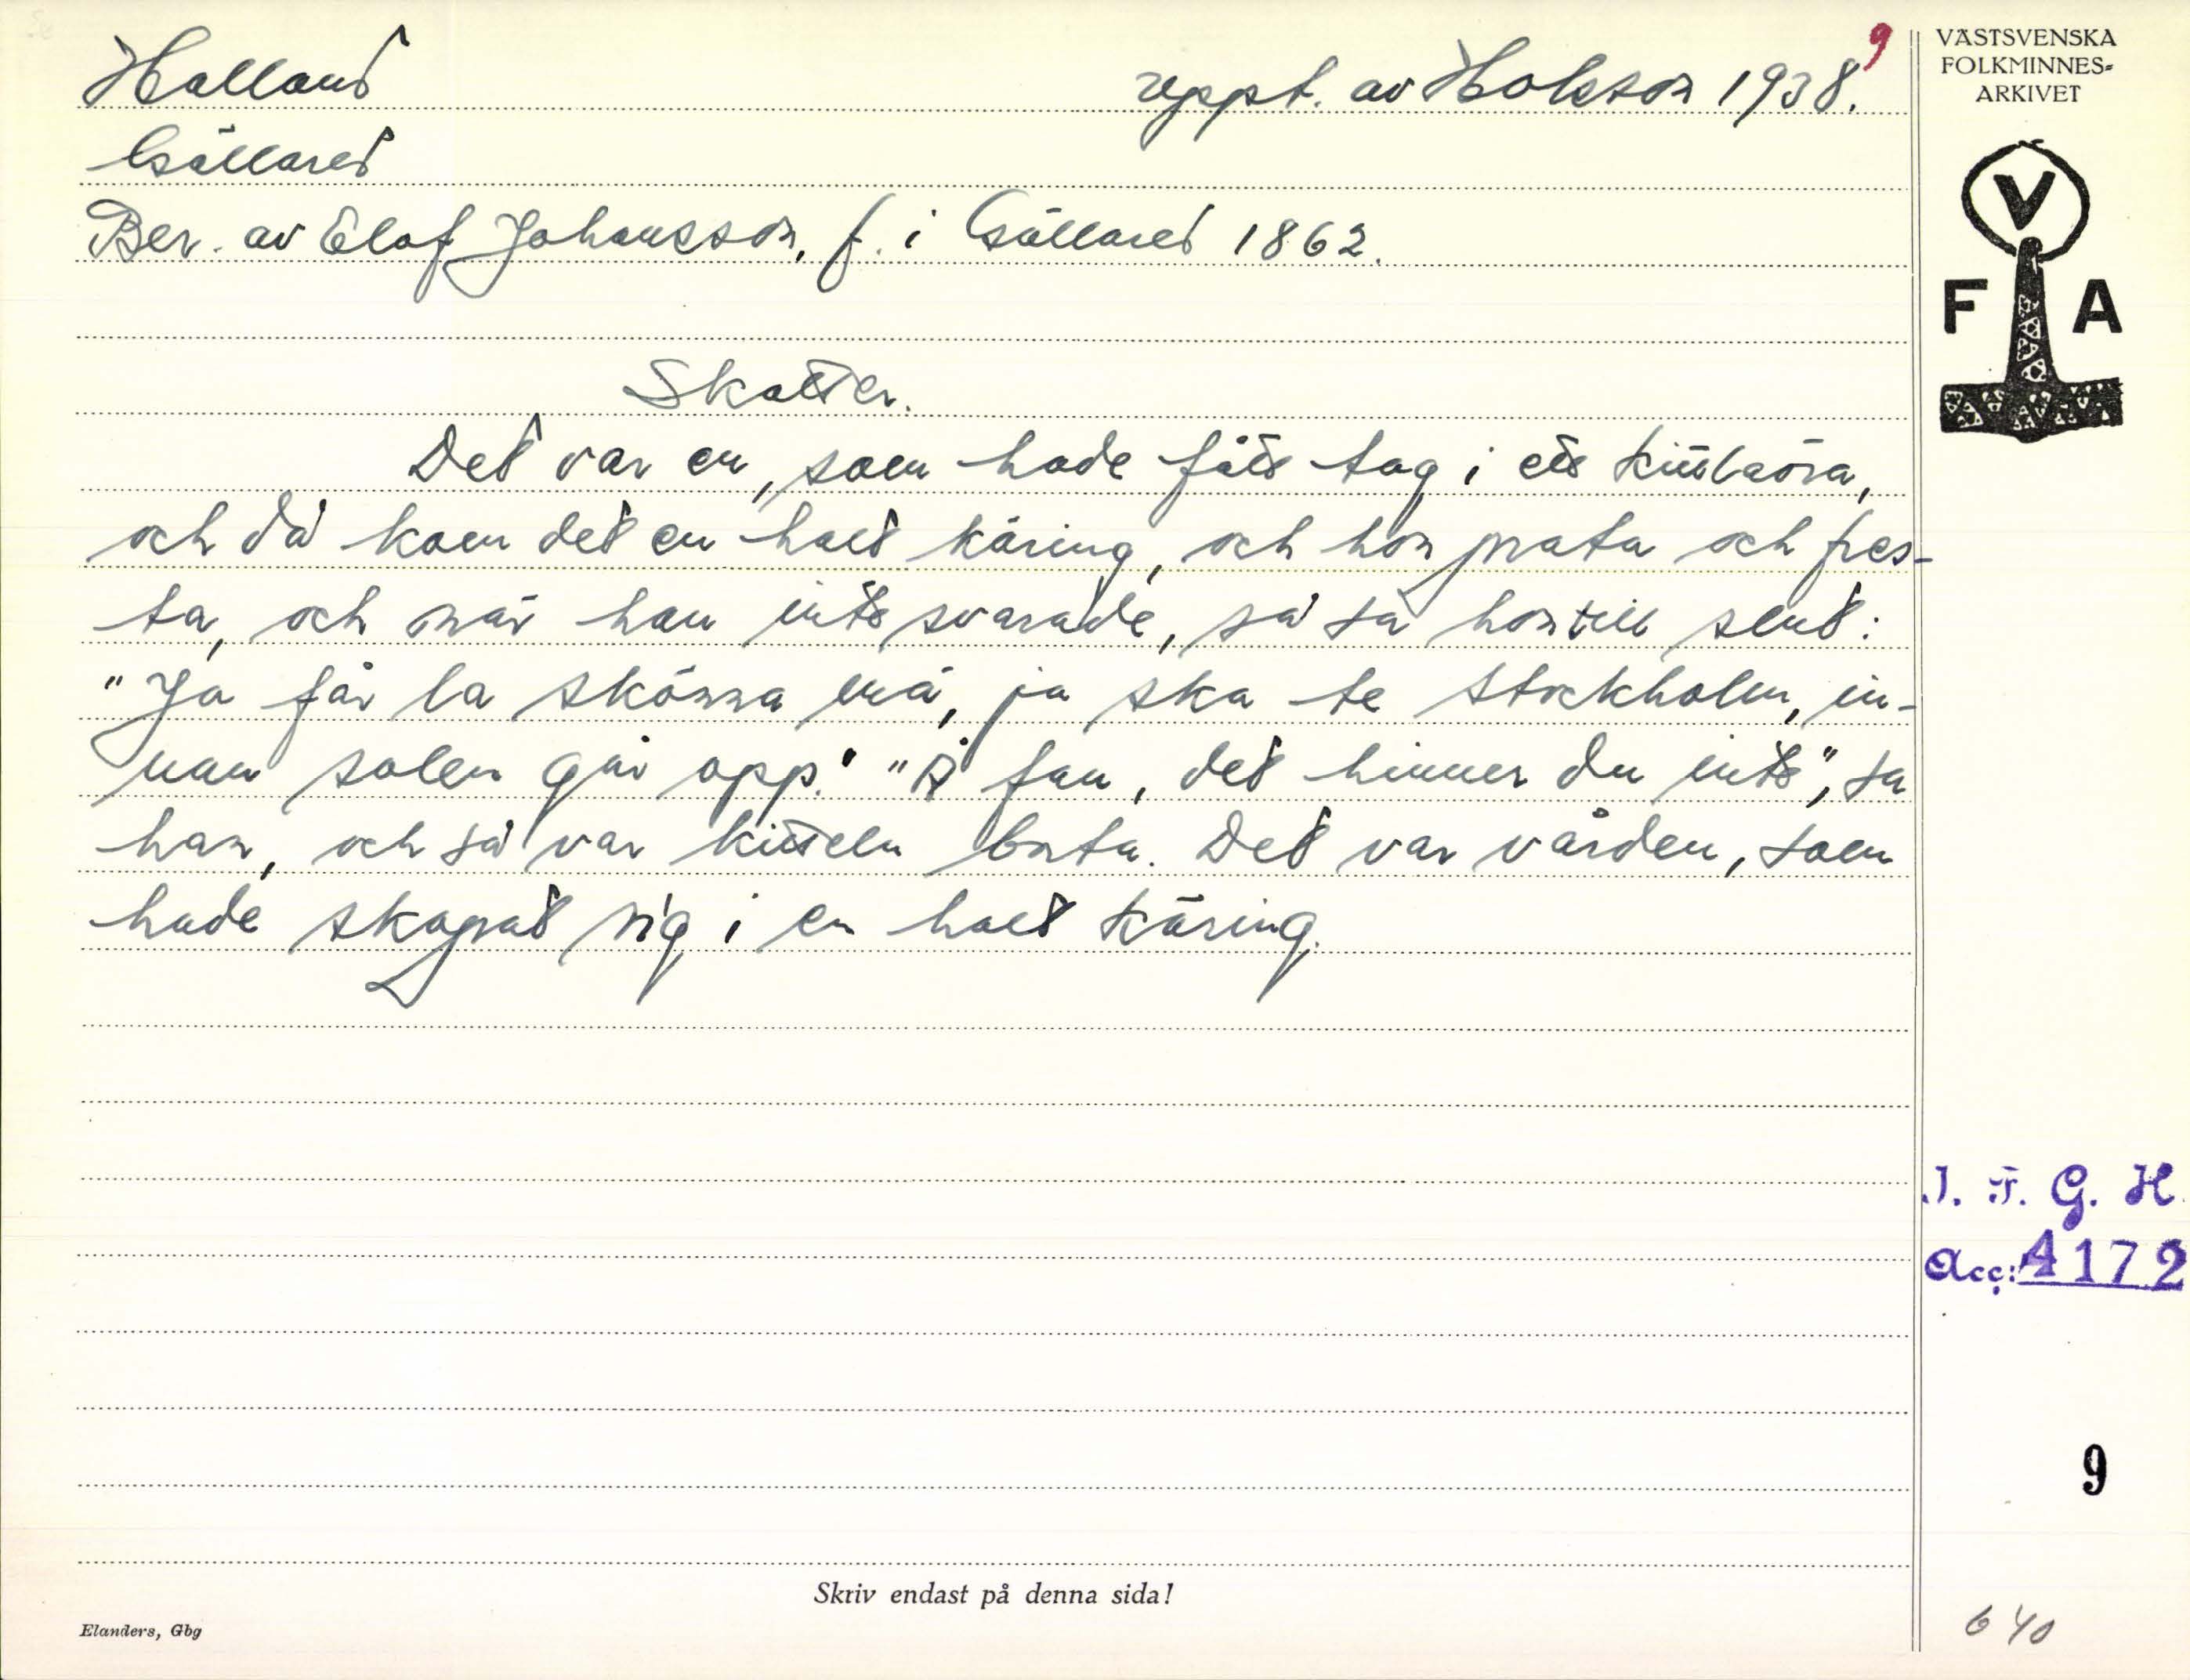 Halland
uppt. av Holstön 1938.
9
Gällared
Ber. av Elof Johansson, f. i Gällared 1862.
Skatter.
Det var en, som hade fått tag i ett kittlaöra,
och då kom det en halt käring, och hon prata och fres-
ta, och när han inte svarade, så sa hon till slut:
"Ja får la skönna mä, ja ska te Stockholm, in-
nan solen går opp." "Å fan, det hinner du inte", sa
han, och så var kitteln borta. Det var vården, som
hade skapat sig i en halt käring.
VÄSTSVENSKA
FOLKMINNES-
ARKIVET
V
F A
I. F. G. H.
Acc: 4172
9
640
Skriv endast på denna sida!
Elanders, Gbg